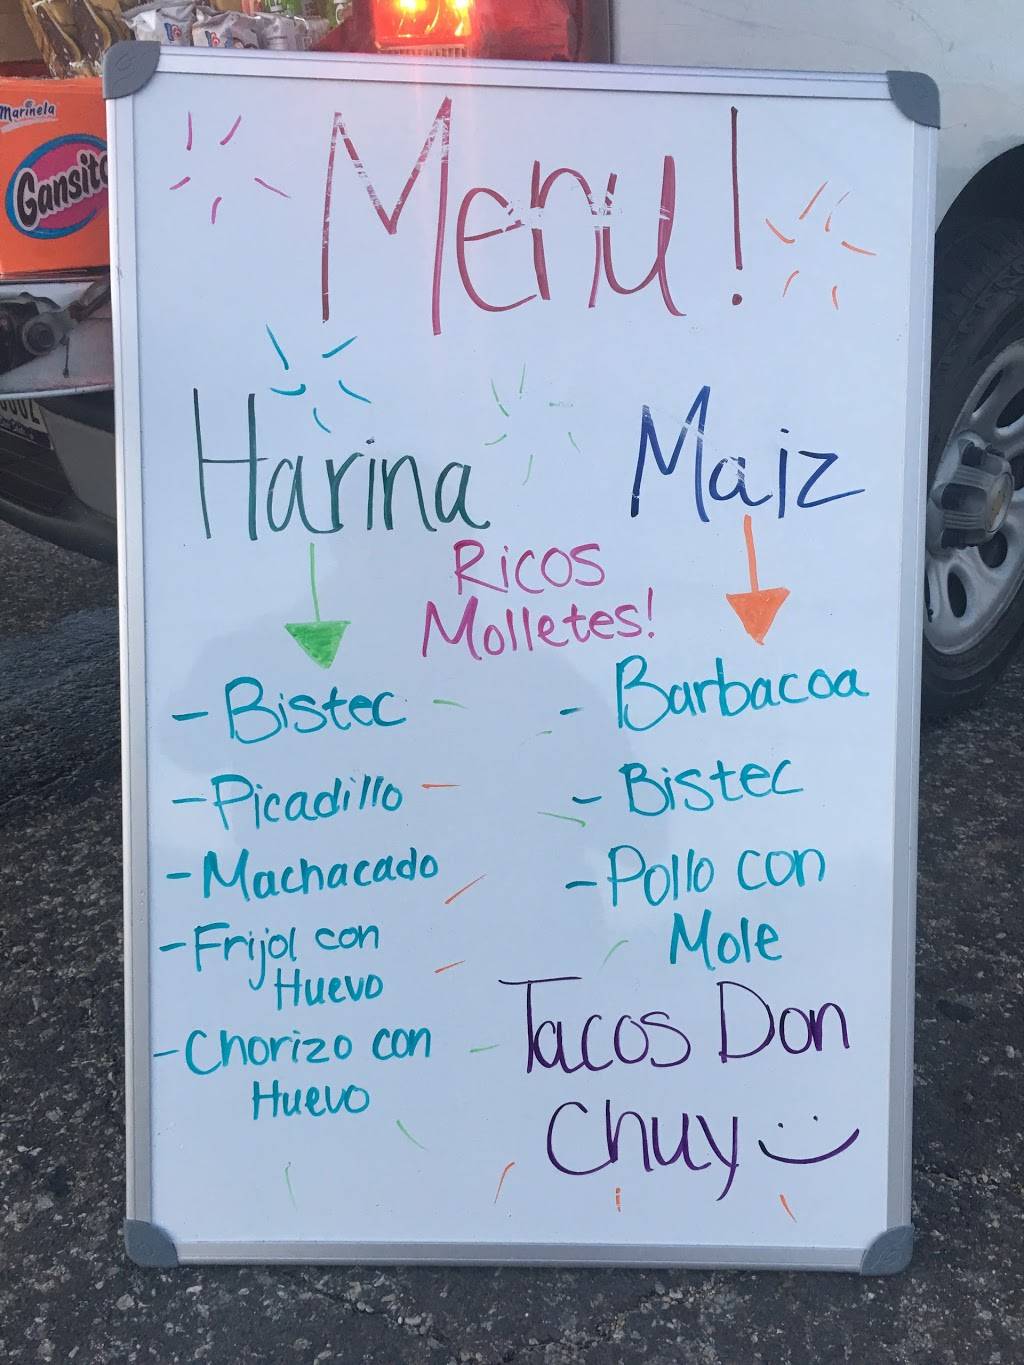 Marinela
Gansito
Menu!
Harina
Maiz
Ricos
Molletes!
- Bistec
- Picadillo
- Machacado
- Frijol con
Huevo
- Chorizo con
Huevo
- Barbacoa
- Bistec
- Pollo con
Mole
Tacos Don
Chuy